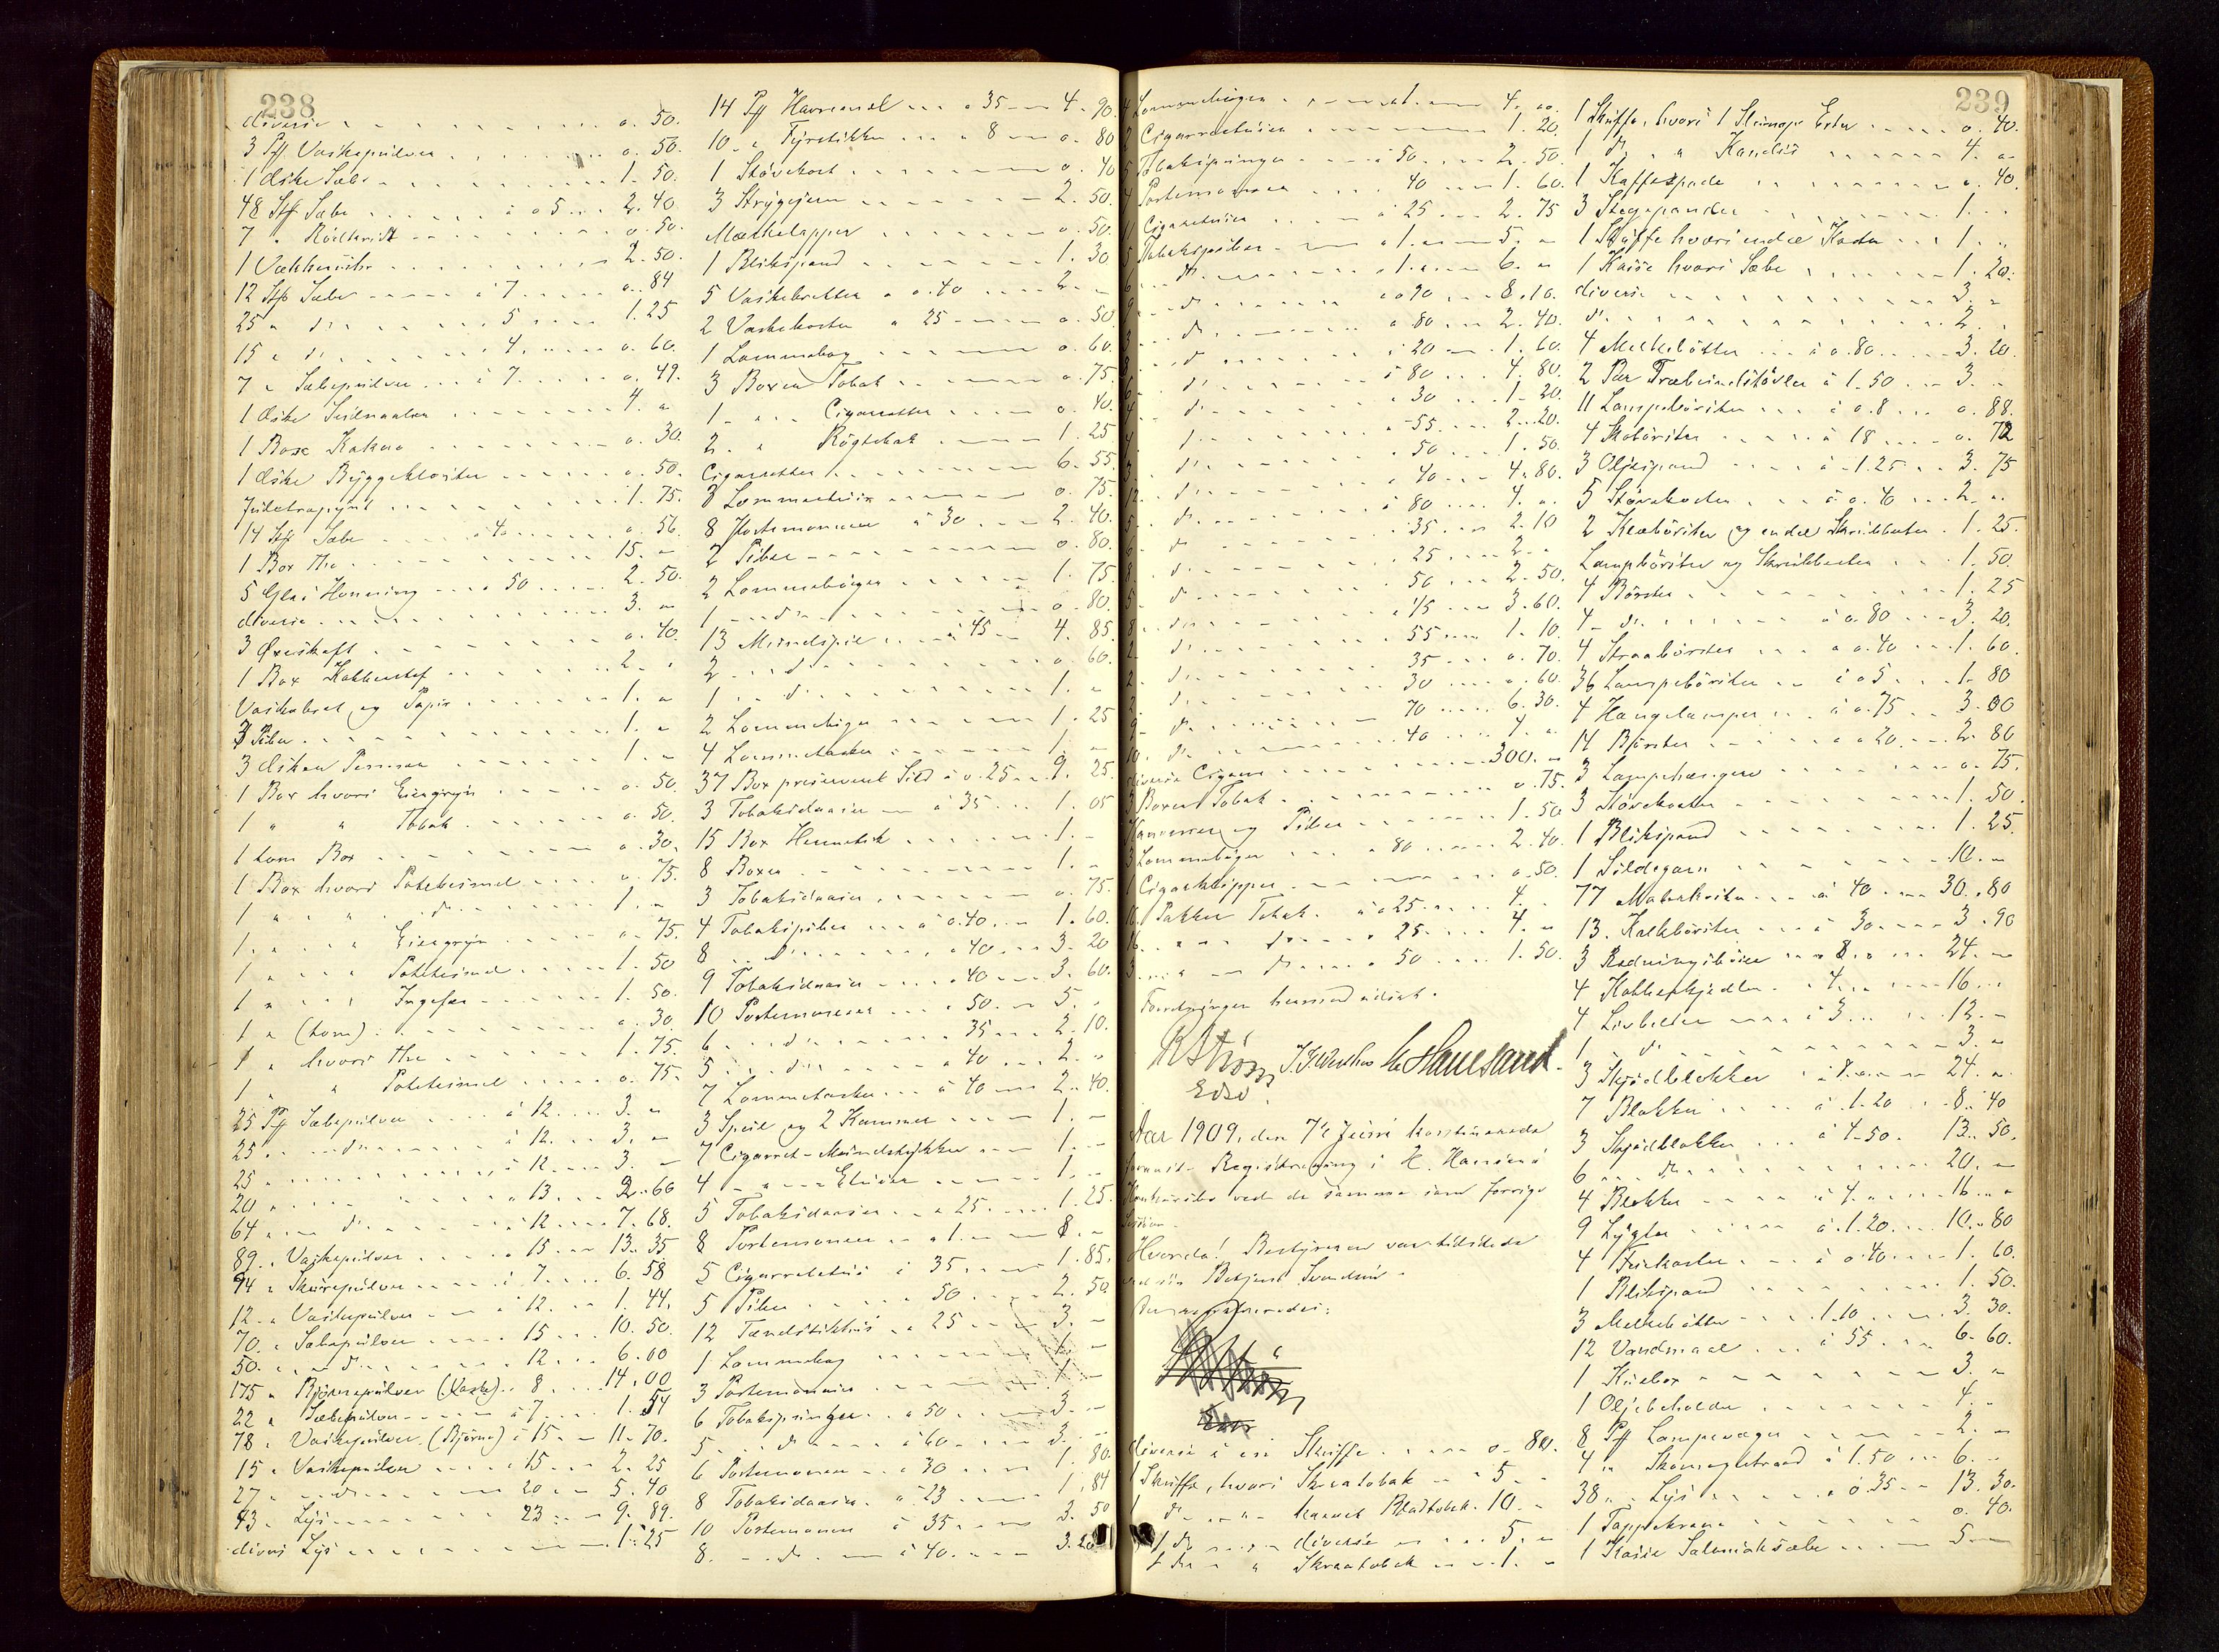 238
diverse . . . . 0. 50.
3 Pf. Vaskepulver . . . . 0. 50.
1 Æske Sæbe . . . . 1. 50.
48 St Sæbe . . . à 0 5 . . 2. 40.
7 " . . . . 0. 50.
1 Vækkeruhr . . . . 2. 50.
12 St Sæbe . . . à 7 . . . 0. 84
25 " do . . . 5 . . . 1. 25
15 " do . . . 4 . . . 0. 60.
7 " Sæbepulver . . . à 7 . . . 0. 49.
1 Æske . . . . 4. "
1 Box Kakao . . . . 0. 30.
1 Æske . . . . 0. 50.
Juletrepynt . . . . 1. 75.
14 St Sæbe . . . à 4 . . . 0. 56.
1 Box The . . . . 15. "
5 Glas Honning . . . à 50 . . . 2. 50.
diverse . . . . 3. "
3 Øxeskaft . . . . 0. 40.
1 Box . . . . 2. "
Vaskebret og Papir . . . . 1. "
3 Piber . . . . 1. "
3 Æsker Penner . . . . 1. "
1 Box hvori . . . . 0. 50.
1 " " Tobak . . . . 0. 50.
1 tom Box . . . . 0. 30.
1 Box hvori Potetesmel . . . . 0. 75.
1 " " do . . . . 1. "
1 " " . . . . 0. 75.
1 " " Potetesmel . . . . 1. 50
1 " " Ingefær . . . . 1. 50.
1 " (tom) . . . . 0. 30
1 " hvori The . . . . 1. 75.
1 " " Potetesmel . . . . 0. 75.
25 Pf Sæbepulver . . . à 12 . . . 3. "
25 " do . . . à 12 . . . 3. "
25 " . . . à 12 . . . 3. "
20 " . . . à 13 . . . 2. 60
64 " do . . . à 12 . . . 7. 68.
89 " Vaskepulver . . . à 15 . . . 13. 35
94 " Skurepulver . . . à 7 . . . 6. 58
12 " Vaskepulver . . . à 12 . . . 1. 44.
70 " Sæbepulver . . . 15 . . . 10. 50.
50 " do . . . 12 . . . 6. 00
175 " Björnepulver (Vask) . . 8 . . . 14. 00
22 " Sæbepulver . . . à 7 . . . 1. 54
78 " Vaskepulver (Bjørne) à 15 . . . 11. 70.
15 " Vaskepulver . . . à 15 . . . 2. 25
27 " do . . . 20 . . . 5. 40
43 " Lys . . . 23 . . . 9. 89.
divers Lys . . . . 1. 25
14 Pf Havremel . . . à 35 . . . 4. 90.
10 " Fyrstikker . . . à 8 . . . 0. 80
1 Støvekost . . . . 0. 40
3 Strygejern . . . . 2. 50.
Mælkelapper . . . . 0. 50.
1 Blikspand . . . . 1. 30
5 Vaskebretter à 0.40 . . . 2. "
2 Vaskekoster à 25 . . . 0. 50.
1 Lommebog . . . . 0. 60.
3 Boxer Tobak . . . . 0. 75.
1 " Cigaretter . . . . 0. 40.
2 " Røgtobak . . . . 1. 25
Cigaretter . . . . 6. 55.
3 . . . . 0. 75.
8 Portemonnæer à 30 . . . 2. 40.
2 Piber . . . . 0. 80.
2 Lommebøger . . . . 1. 75.
1 do . . . . 0. 80.
13 Mundspil . . . à 45 . . . 4. 85.
2 do . . . . 0. 60.
1 do . . . . 1. "
2 Lommebøger . . . . 1. 25
4 Lommetasker . . . . 1. "
37 Box preserveret Sild à 0.25 . . 9. 25.
3 Tobaksdaaser . . . à 35 . . . 1. 05
15 Box Hermetik . . . . 1. "
8 Boxer . . . . 1. "
3 Tobaksdaaser . . . . 0. 75.
4 Tobakspiber . . . à 0.40 . . . 1. 60.
8 do . . . à 40 . . . 3. 20
9 Tobaksdaaser . . . à 40 . . . 3. 60.
10 Portemonnæer . . . à 50 . . . 5. "
6 do . . . 35 . . . 2. 10.
5 do . . . à 40 . . . 2. "
7 Lommetasker . . . à 40 . . . 2. 40.
3 Speil og 2 Kammer . . . . 1. "
7 Cigarret-Mundstykker . . . 1. "
4 " Etuier . . . 1. "
5 Tobaksdaaser . . . à 25 . . . 1. 25.
8 Portemonnæer . . . à 1. . . . 8. "
5 Cigarretetuis à 35 . . . 1. 85.
5 Piber . . . 50 . . . 2. 50
12 Tændstikhus . . à 25 . . . 3. "
1 Lommebog . . . . 1. "
3 Portemonnæer . . . . 1. "
6 Tobakspunger . . à 50 . . . 3. "
5 do . . . à 60 . . . 3. "
6 Portemonnæer . . . à 30 . . . 1. 80.
8 Tobaksdaaser . . à 23 . . . 1. 84
10 Portemonnæer à 35 . . . 3. 50
8 do . . . à 40 . . . 3. 20
239
4 Lommebøger . . . à 1. . . . 4. 00.
2 Cigarretuier . . . . 1. 20.
5 Tobakspunger . . . à 50 . . . 2. 50.
4 Portemonnæer . . . 40 . . . 1. 60.
11 Cigaretuier . . . à 25 . . . 2. 75
5 Tobakspiber . . . à 1. . . . 5. "
6 do . . . à 1. . . . 6. "
9 do . . . à 0 90 . . . 8. 10.
3 do . . . à 80 . . . 2. 40.
8 do . . . à 20 . . . 1. 60.
6 do . . . à 80 . . . 4. 80.
4 do . . . à 30 . . . 1. 20.
4 do . . . 55 . . . 2. 20.
3 do . . . 50 . . . 1. 50.
12 do . . . à 40 . . . 4. 80.
5 do . . . à 80 . . . 4. "
6 do . . . 35 . . . 2. 10
8 do . . . 25 . . . 2. "
5 do . . . 50 . . . 2. 50.
8 do . . . à 45 . . . 3. 60.
2 do . . . 55 . . . 1. 10.
2 do . . . 35 . . . 0. 70.
2 do . . . 30 . . . 0. 60.
9 do . . . 70 . . . 6. 30.
10 do . . . 40 . . . 4. "
diverse Cigarer . . . . 300. "
3 Boxer Tobak . . . . 0. 75.
og Piber . . . . 1. 50
3 Lommebøger . . . à 80 . . . 2. 40.
1 Cigarklipper . . . . 0. 50.
16 Pakker Tobak . . à 0 25 . . . 4. "
16 " do . . . à 25 . . . 4. "
3 " do . . . à 50 . . . 1. 50.
Forretningen hermed udsat.
K Strøm J. J. Wenthes
Edsv.
Aar 1909, den 7de Juni kontinuerede
Registrering i H. Hansens
Konkursbo ved de samme som forrige
Session.
Hvorda! Bestyreren var tilstede
Svendsen.
diverse i en Skuffe . . . 0. 80.
1 Skuffe, hvori Skraatobak . . . 5. "
1 do " Bladtobak 10. "
1 do " diverse . . . 5. "
1 do " Skraatobak . . . 1. "
1 Skuffe, hvori 1 Erter . . . 0. 40.
1 do " Kandis . . . . 4. "
1 Kaffespade . . . . 0. 40.
3 Stegepander . . . . 1. "
1 Skuffe hvori endel . . . 1. "
1 Kasse hvori Sæbe . . . . 1. 20.
diverse . . . . 3. "
do . . . . 2. "
4 Melkebøtter . . . à 0.80 . . . 3. 20.
2 Par Træbundstøvler à 1.50 . . . 3. "
11 Lampebørster . . . à 0.8 . . . 0. 88.
4 Skobørster . . . à 18 . . . 0. 72
3 Oljespand . . . à 1.25 . . 3. 75
5 Støvekoster . . . à 0.40 . . . 2. "
2 Klæbørster og endel Skrubbester . 1. 25.
Lampbørster og Skrubbester . . . 1. 50.
4 Børster . . . . 1. 25
4 do . . . à 0.80 . . . 3. 20.
4 Straabørster . . . à 0.40 . . . 1. 60.
36 Lampebørster . . . à 0 5 . . . 1. 80
4 Hængelamper . . à 0.75 . . 3. 00
14 Børster . . . à 0 20 . . . 2. 80
3 Lampehængere . . . . 0. 75.
3 Støvekoster . . . . 1. 50.
1 Blikspand . . . . 1. 25.
1 Sildegarn . . . . 10. "
77 Malerkoster . . . à 40 . . . 30. 80
13 Kalkbørster . . . à 30 . . . 3. 90
3 Redningsbøier . . à 8. . . . 24. "
4 . . . 4. . . . 16. "
4 Livbelter . . . à 3 . . . 12. "
1 do . . . . 3. "
3 Skjødblokker . à 8. . . . 24. "
7 Blokker . . . à 1.20 . . 8. 40
3 Skjødblokker . . . à 4.50 . 13. 50.
6 do . . . . 20. "
4 Blokker . . . à 4. . . . 16. "
9 Lygter . . . à 1.20 . . . 10. 80
4 . . . à 0.40 . . . 1. 60.
1 Blikspand . . . . 1. 50.
3 Melkebøtter . . . 1.10 . . . 3. 30.
12 Vandmaal . . . à 55 . . . 6. 60.
1 . . . . 3. "
1 Oljebeholder . . . . 4. "
8 Pf Lampevæger . . . . 2. "
4 " à 1.50 . . . 6. "
38 " Lys . . . à 0.35 . . . 13. 30.
1 Tappekrane . . . . 0. 40.
1 Kasse Salmiaksæbe . . . 5. "